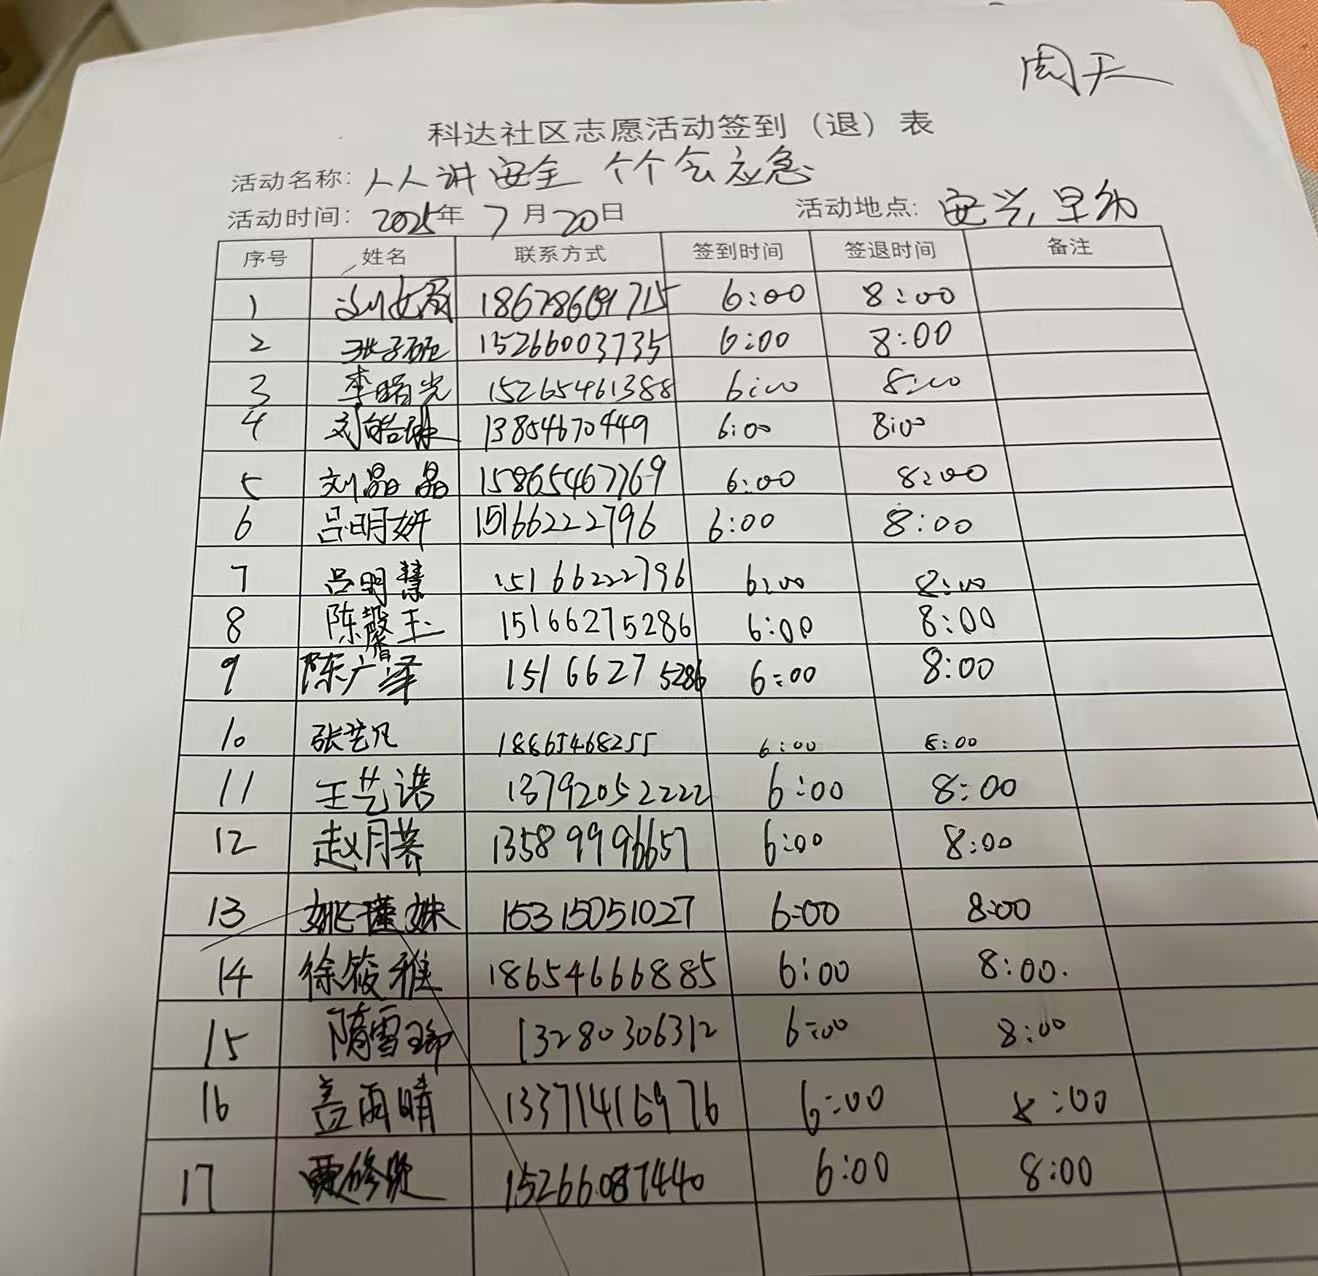 周天
科达社区志愿活动签到（退）表
活动名称：人人讲安全 个个会应急
活动时间：2025年7月20日 活动地点：安兴,早幼
序号 姓名 联系方式 签到时间 签退时间 备注
1 刘 18678681715 6:00 8:00
2 张子 15266003735 6:00 8:00
3 李曙光 15265461388 6:00 8:00
4 刘皓琳 13854670449 6:00 8:00
5 刘晶晶 15865467769 6:00 8:00
6 吕明妍 15166222796 6:00 8:00
7 吕明慧 15166222796 6:00 8:00
8 陈馨玉 15166275286 6:00 8:00
9 陈广泽 15166275286 6:00 8:00
10 张艺凡 18865468255 6:00 8:00
11 王艺诺 13792052222 6:00 8:00
12 赵月荞 13589996657 6:00 8:00
13 姚瑾姝 15315051027 6:00 8:00
14 徐筱雅 18654666885 6:00 8:00.
15 隋雪 13280306312 6:00 8:00
16 盖雨晴 13371416976 6:00 8:00
17 贾修贤 15266087440 6:00 8:00